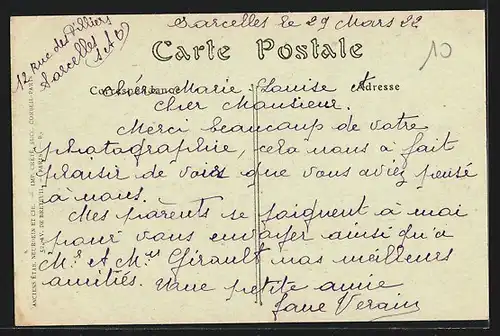 Sarcelles le 29 Mars 22
12 rue des Piliers
Sarcelles
S et O
10
Carte Postale
Correspondance
Adresse
Chère Marie Louise et
Cher Monsieur.
Merci beaucoup de votre
photographie, cela nous a fait
plaisir de voir que vous aviez pensé
à nous.
Mes parents se joignent à moi
pour vous envoyer ainsi qu'à
Mr et Mme Girault nos meilleurs
amitiés. Une petite amie
Jane Verain
ANCIENS ÉTAB. NEURDEIN ET CIE. — IMP. CRÉTÉ, SUCC. CORBEIL-PARIS
52, AV. DE BRETEUIL — PARIS